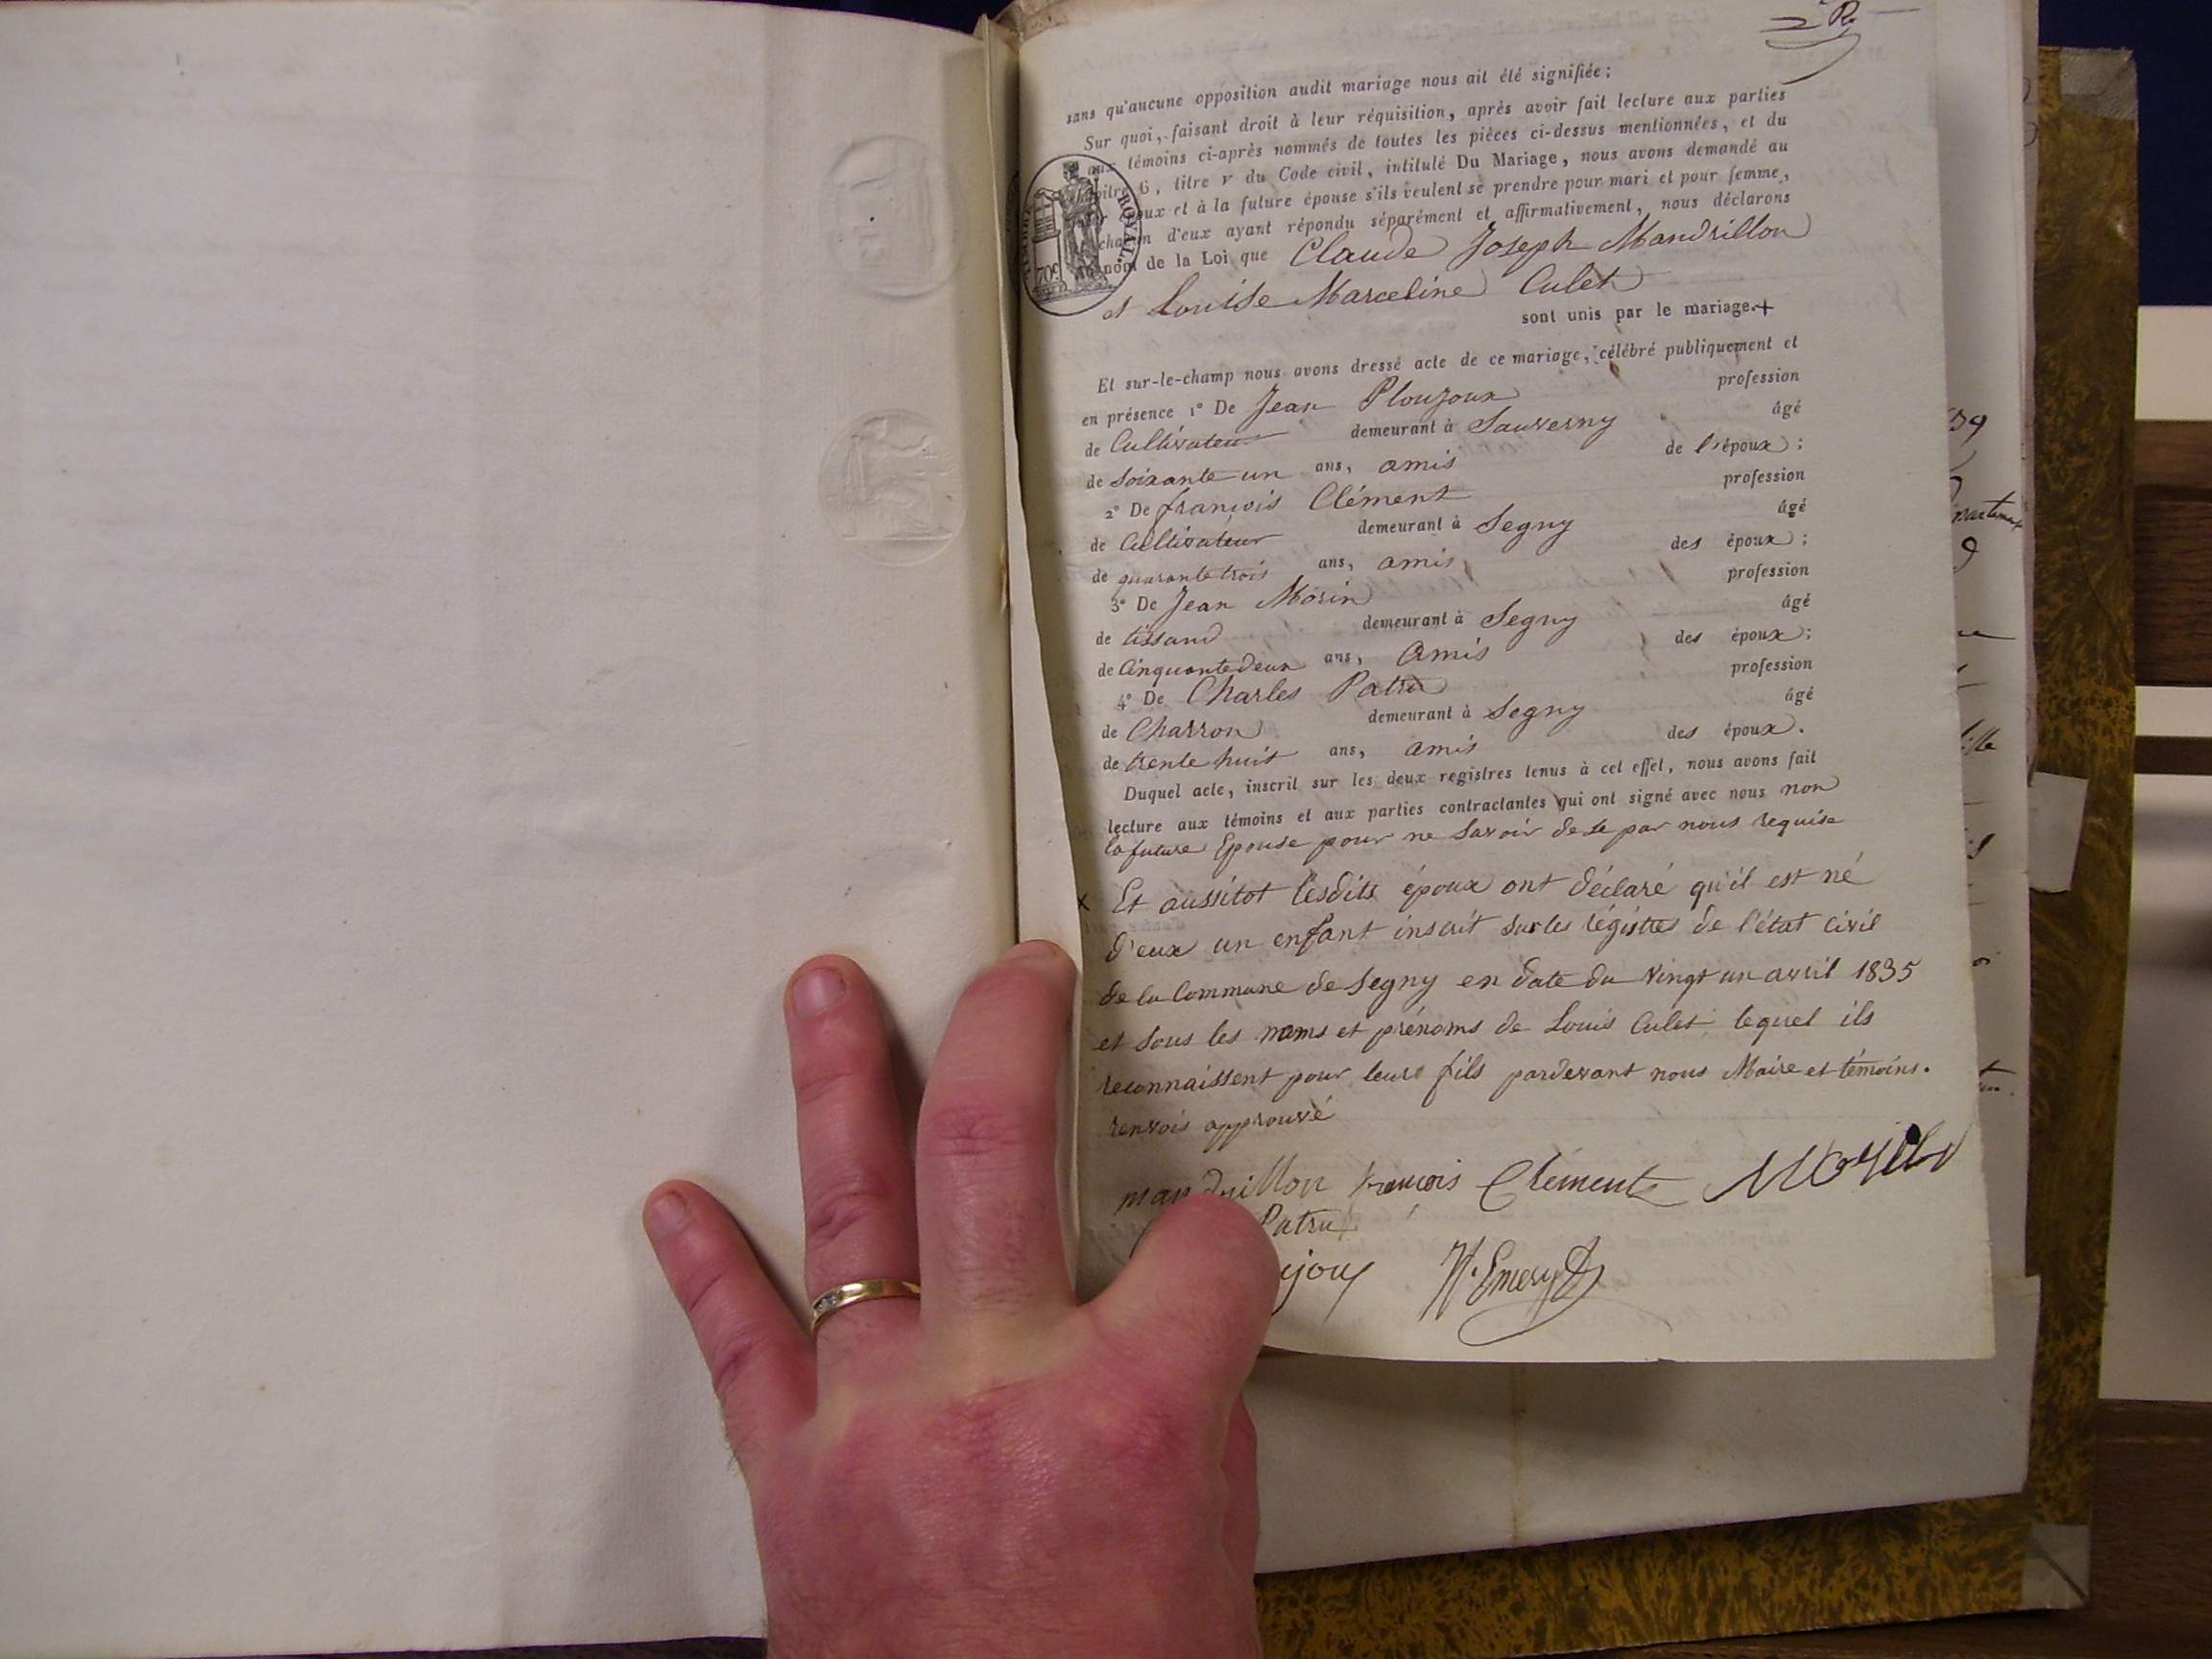 2 Rg
sans qu'aucune opposition audit mariage nous ait été signifiée ;
Sur quoi, faisant droit à leur réquisition, après avoir fait lecture aux parties
aux témoins ci-après nommés de toutes les pièces ci-dessus mentionnées, et du
6, titre v du Code civil, intitulé Du Mariage, nous avons demandé au
et à la future épouse s'ils veulent se prendre pour mari et pour femme,
d'eux ayant répondu séparément et affirmativement, nous déclarons
nom de la Loi que Claude Joseph Mandrillon
et Louise Marceline Culet
sont unis par le mariage.+
TIMBRE ROYAL
70c
Et sur-le-champ nous avons dressé acte de ce mariage, célébré publiquement et
en présence 1° De Jean Ploujoux profession
de Cultivateur demeurant à Sauverny âgé
de soixante un ans, amis de l'époux ;
2° De françois Clément profession
de Cultivateur demeurant à Segny âgé
de quarante trois ans, amis des époux ;
3° De Jean Morin profession
de tissand demeurant à Segny âgé
de Cinquante deux ans, Amis des époux ;
4° De Charles Patru profession
de Charron demeurant à Segny âgé
de trente huit ans, amis des époux.
Duquel acte, inscrit sur les deux registres tenus à cet effet, nous avons fait
lecture aux témoins et aux parties contractantes qui ont signé avec nous non
la future Epouse pour ne savoir de ce par nous requise
x Et aussitot lesdits époux ont déclaré qu'il est né
d'eux un enfant inscrit sur les régistres de l'état Civil
de la Commune de Segny en date du vingt un avril 1835
et sous les noms et prénoms de Louis Culet lequel ils
reconnaissent pour leur fils pardevant nous Maire et témoins.
renvois approuvé
mandrillon françois Clément Morin
Patru
ujoux H. Emery